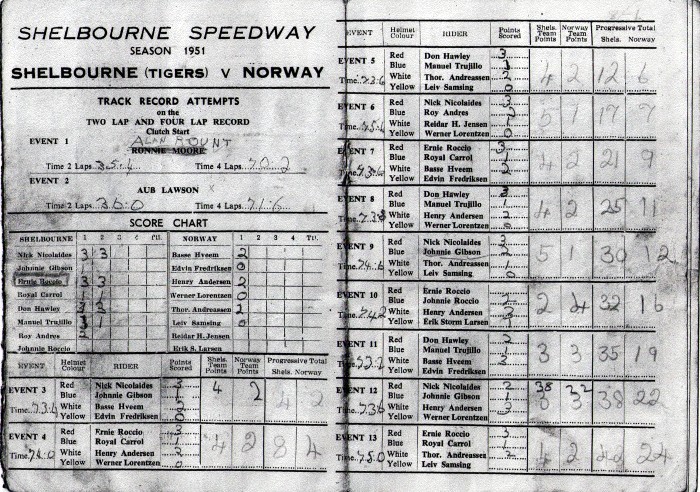 SHELBOURNE SPEEDWAY
SEASON 1951
SHELBOURNE (TIGERS) V NORWAY
TRACK RECORD ATTEMPTS
on the
TWO LAP AND FOUR LAP RECORD
Clutch Start
EVENT 1 ALAN HUNT
RONNIE MOORE
Time 2 Laps 35.4 Time 4 Laps 70.2
EVENT 2
AUB LAWSON
Time 2 Laps 36:0 Time 4 Laps 71.6
SCORE CHART
SHELBOURNE 1 2 3 4 Ttl. NORWAY 1 2 3 4 Ttl.
Nick Nicolaides 3 3 Basse Hveem 2
Johnnie Gibson Edvin Fredriksen 0
Ernie Roccio 3 3 Henry Andersen 2
Royal Carrol 1 1 Werner Lorentzen 0
Don Hawley 3 3 Thor. Andreassen 2
Manuel Trujillo 3 1 Leiv Samsing 0
Roy Andres 2 Reidar H. Jensen
Johnnie Roccio Erik S. Larsen
EVENT Helmet Colour RIDER Points Scored Shels. Team Points Norway Team Points Progressive Total Shels. Norway
EVENT 3 Red Nick Nicolaides 3 4 2 4 2
Blue Johnnie Gibson
Time 73.6 White Basse Hveem
Yellow Edvin Fredriksen 0
EVENT 4 Red Ernie Roccio 3 4 2 8 4
Blue Royal Carrol 1
Time 74:0 White Henry Andersen 2
Yellow Werner Lorentzen 0
EVENT Helmet Colour RIDER Points Scored Shels. Team Points Norway Team Points Progressive Total Shels. Norway
EVENT 5 Red Don Hawley 3 4 2 12 6
Blue Manuel Trujillo 1
Time 73:6 White Thor. Andreassen 2
Yellow Leiv Samsing 0
EVENT 6 Red Nick Nicolaides 3 5 1 17 7
Blue Roy Andres 2
Time 75.4 White Reidar H. Jensen 1
Yellow Werner Lorentzen 0
EVENT 7 Red Ernie Roccio 3 4 2 21 9
Blue Royal Carrol 1
Time White Basse Hveem 2
Yellow Edvin Fredriksen 0
EVENT 8 Red Don Hawley 3 4 2 25 11
Blue Manuel Trujillo 1
Time White Henry Andersen 2
Yellow Werner Lorentzen 0
EVENT 9 Red Nick Nicolaides 3 5 1 30 12
Blue Johnnie Gibson 2
Time 74.6 White Thor. Andreassen 1
Yellow Leiv Samsing 0
EVENT 10 Red Ernie Roccio 2 4 32 16
Blue Johnnie Roccio 2
Time 74.2 White Henry Andersen 3
Yellow Erik Storm Larsen 1
EVENT 11 Red Don Hawley 2 3 3 35 19
Blue Manuel Trujillo 1
Time White Basse Hveem 3
Yellow Edvin Fredriksen
EVENT 12 Red Nick Nicolaides 2 38 22
Blue Johnnie Gibson 1 3 3 38 22
Time 73.6 White Henry Andersen 3
Yellow Werner Lorentzen
EVENT 13 Red Ernie Roccio 3 4 2 24
Blue Royal Carrol 1
Time 75.0 White Thor. Andreassen 2
Yellow Leiv Samsing